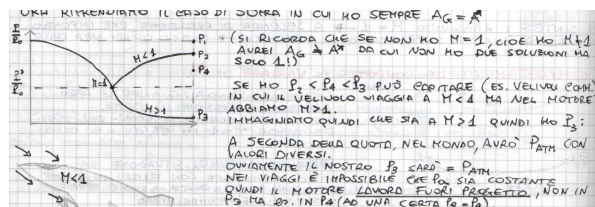 ORA RIPRENDIAMO IL CASO DI SOPRA IN CUI HO SEMPRE A_G = A*
P/P₀
P₁
P₂
P₄
P₃
M<1
M=1
M>1
P*/P₀
(SI RICORDA CHE SE NON HO M=1, CIOÈ HO M≠1
AVREI A_G ≠ A* DA CUI NON HO DUE SOLUZIONI MA
SOLO 1!)
SE HO P₂ < P₄ < P₃ PUÒ CAPITARE (ES. VELIVOLI COMM.)
IN CUI IL VELIVOLO VIAGGIA A M<1 MA NEL MOTORE
ABBIAMO M>1.
IMMAGINIAMO QUINDI CHE SIA A M>1 QUINDI HO P₃:
A SECONDA DELLA QUOTA, NEL MONDO, AVRÒ P_ATM CON
VALORI DIVERSI.
OVVIAMENTE IL NOSTRO P₃ SARÀ = P_ATM
NEI VIAGGI È IMPOSSIBILE CHE P₀ SIA COSTANTE
QUINDI IL MOTORE LAVORA FUORI PROGETTO, NON IN
P₃ MA ES. IN P₄ (AD UNA CERTA
M<1